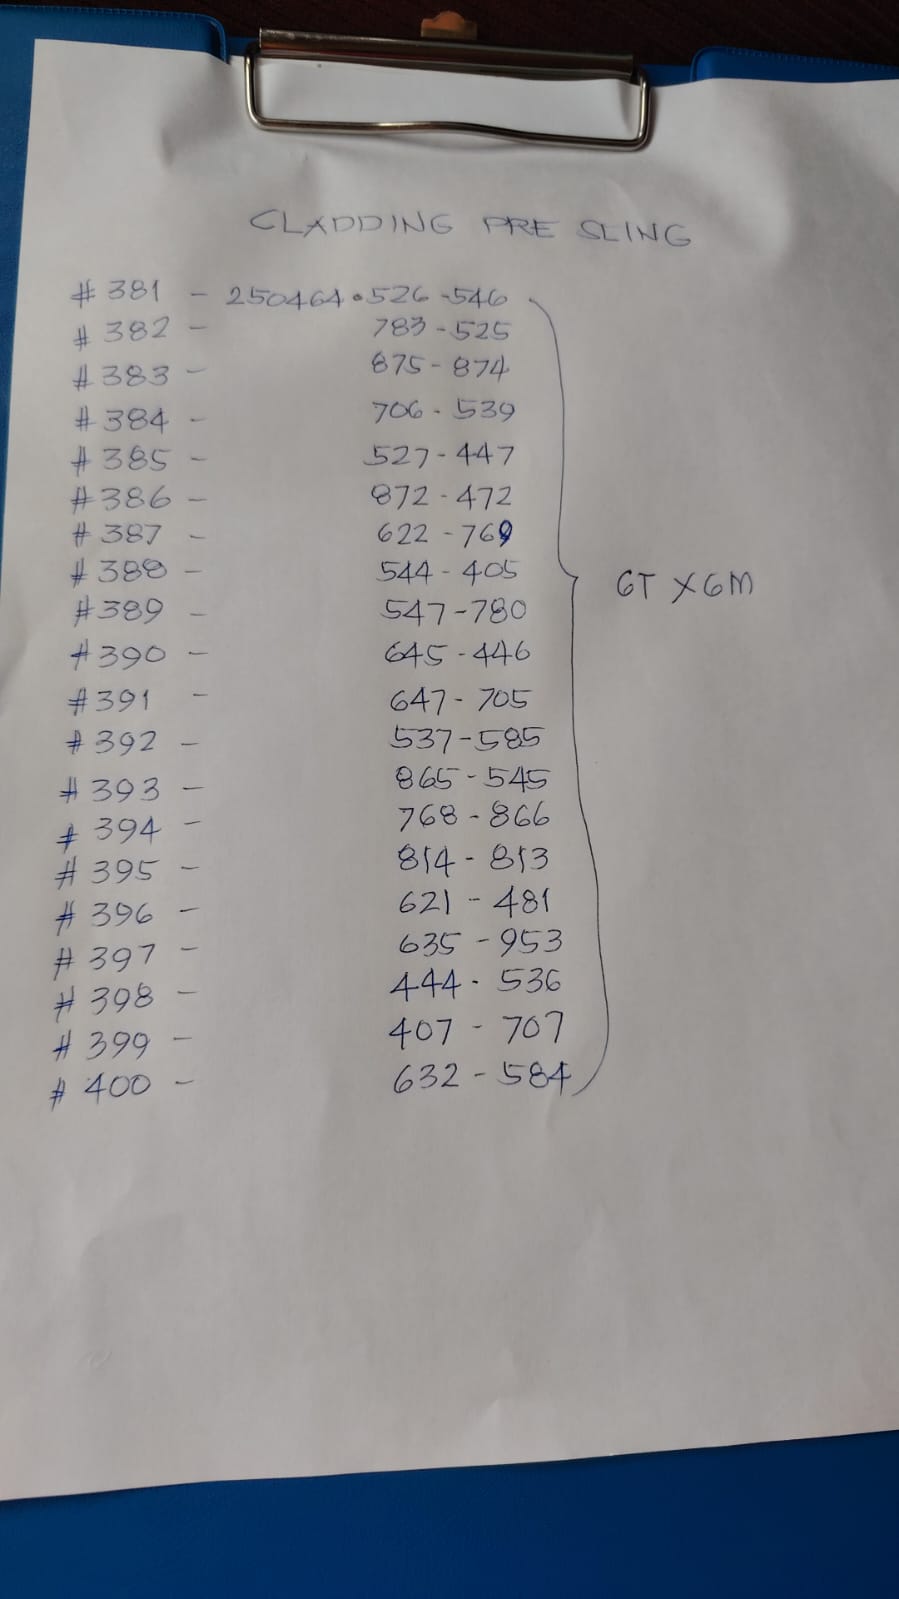 CLADDING PRE SLING
#381 - 250464•526-546
#382 - 783-525
#383 - 875-874
#384 - 706-539
#385 - 527-447
#386 - 872-472
#387 - 622-769
#388 - 544-405
#389 - 547-780
#390 - 645-446
#391 - 647-705
#392 - 537-585
#393 - 865-545
#394 - 768-866
#395 - 814-813
#396 - 621-481
#397 - 635-953
#398 - 444-536
#399 - 407-707
#400 - 632-584
6T X6M